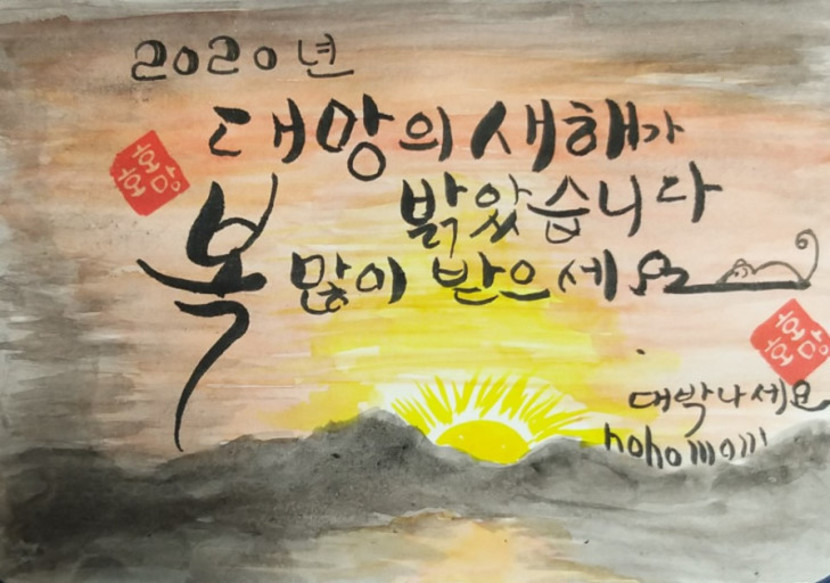 2020년
대망의 새해가
밝았습니다
복 많이 받으세요
대박나세요
hohomam
호호맘
호호맘